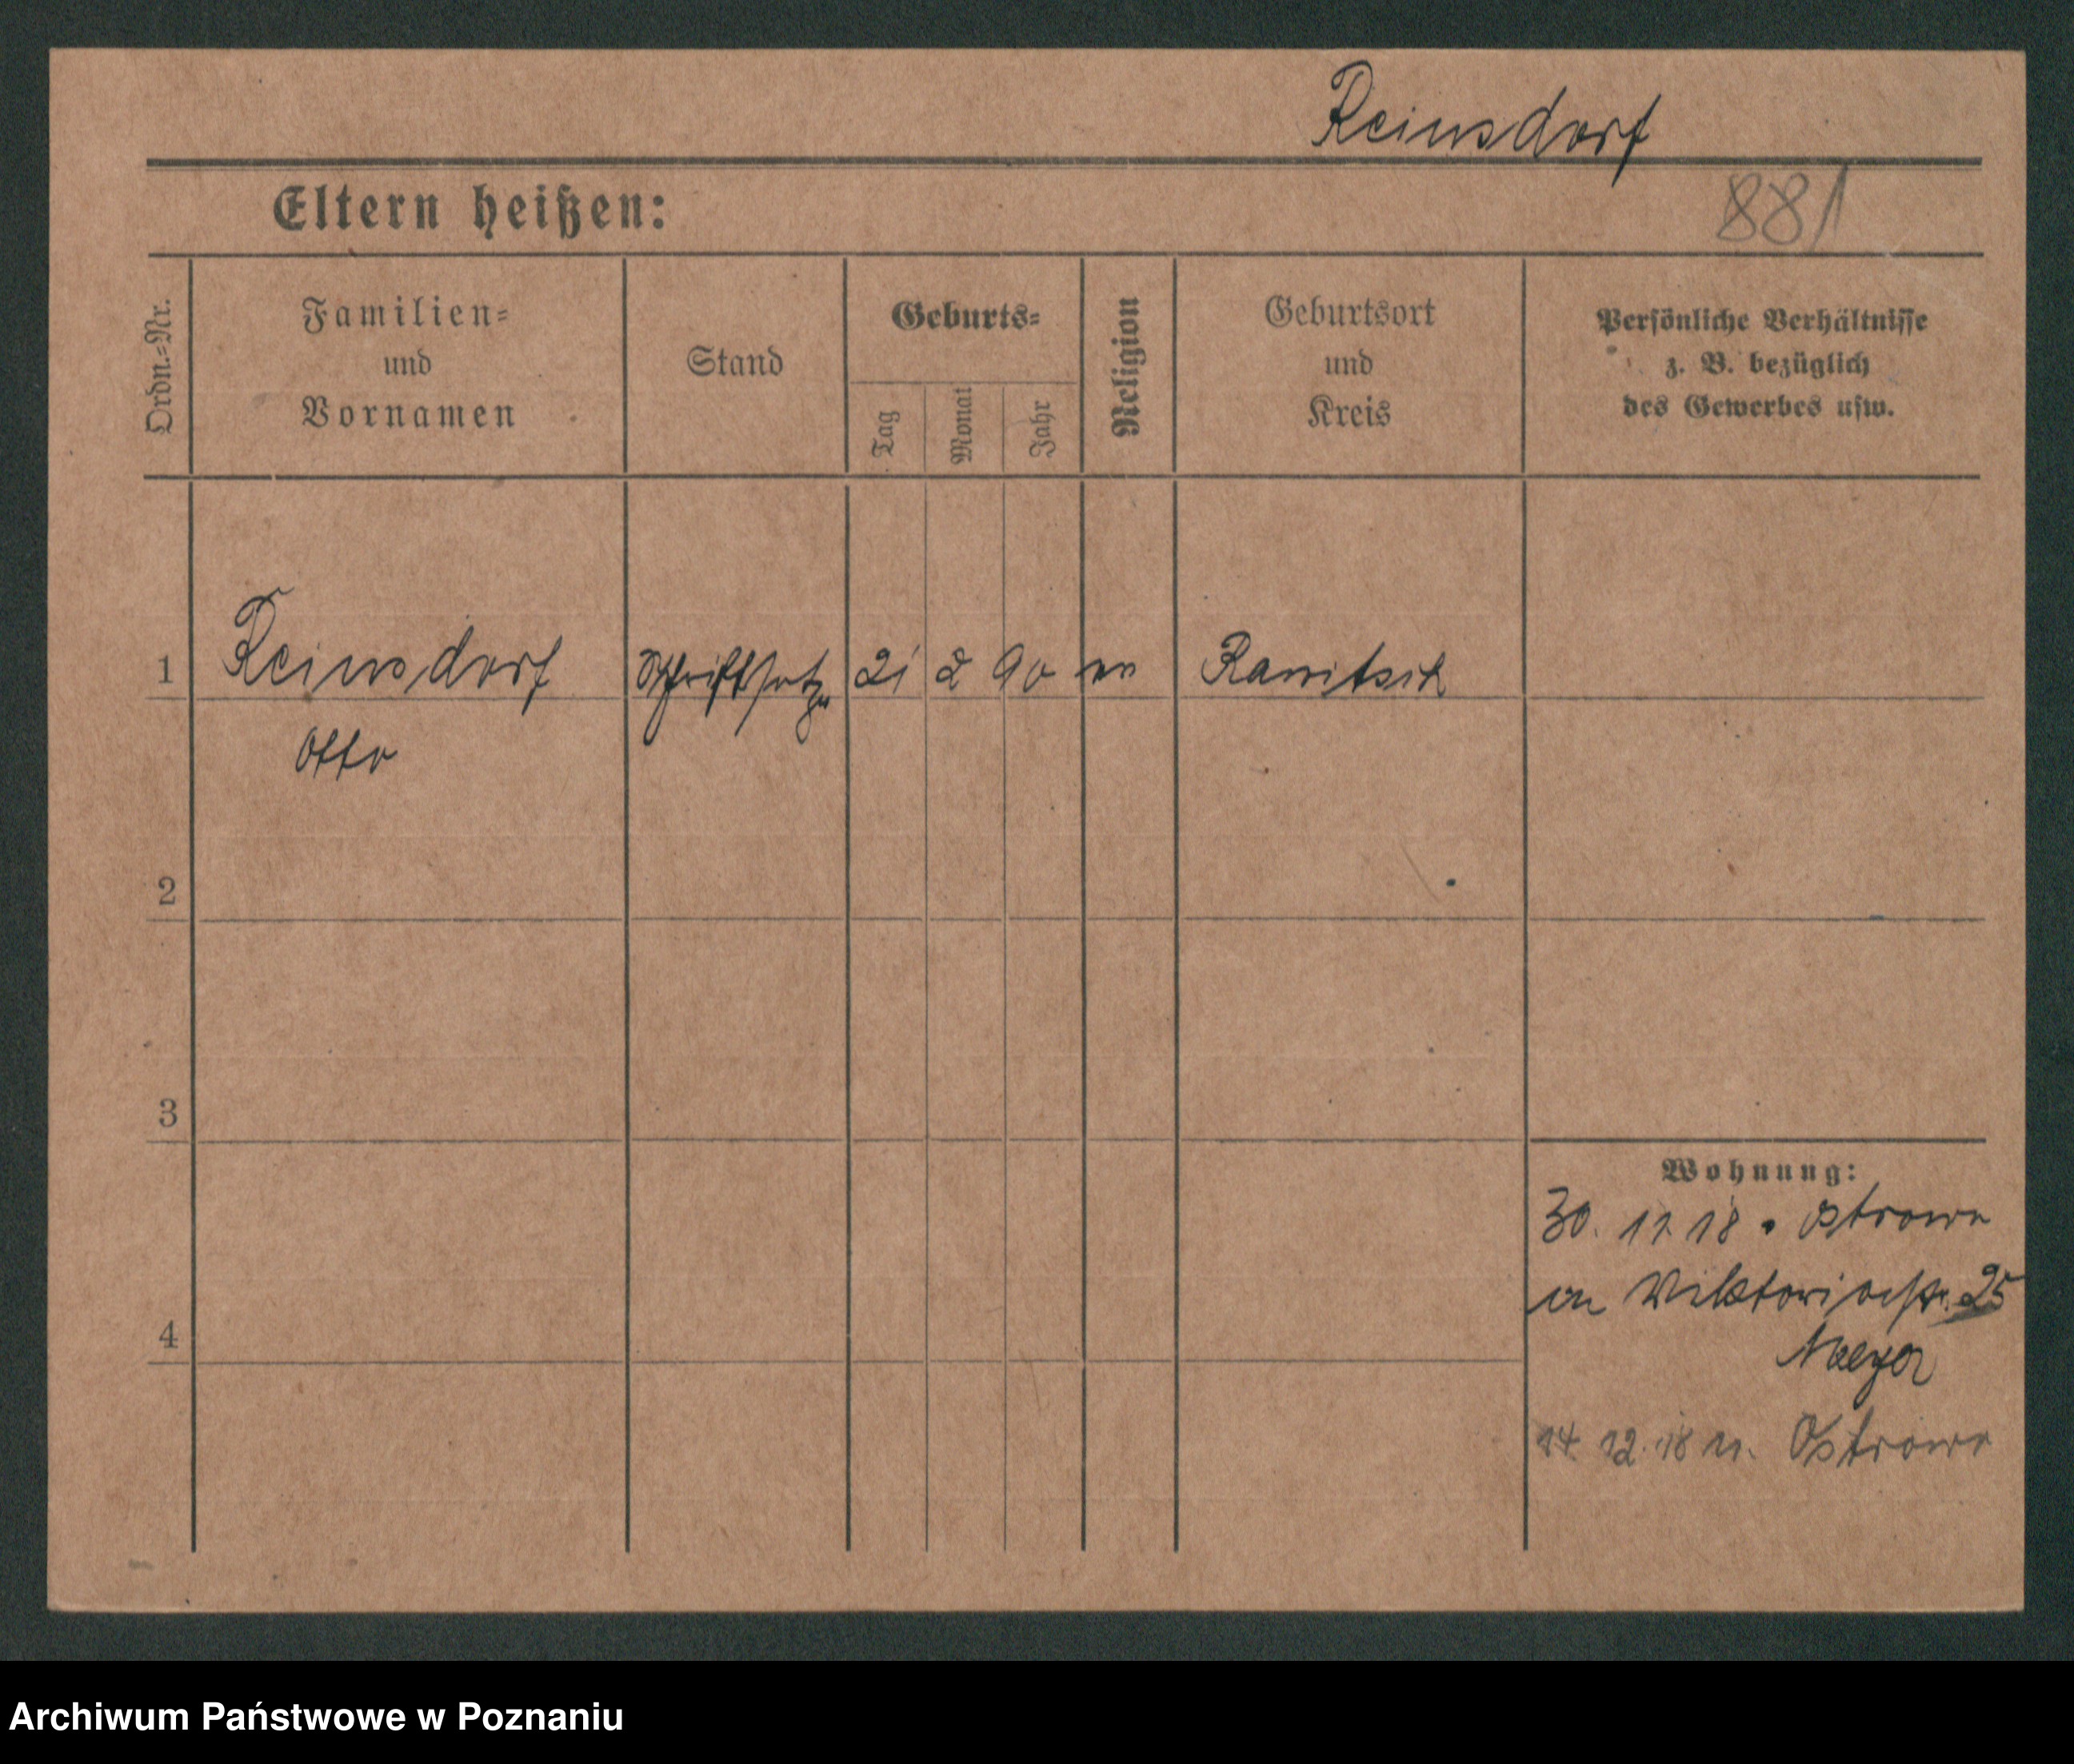 Reinsdorf
Eltern heißen:
881
Ordn.=Nr.
Familien=
und
Vornamen
Stand
Geburts=
Tag
Monat
Jahr
Religion
Geburtsort
und
Kreis
Persönliche Verhältnisse
z. B. bezüglich
des Gewerbes usw.
1 Reinsdorf Schriftsetzer 21 2 90 ev Rawitsch
Otto
2
3
4
Wohnung:
30. 11 18 . Ostrowo
in Viktoriastr. 25
Meyer
14 12. 18 n. Ostrowo
Archiwum Państwowe w Poznaniu